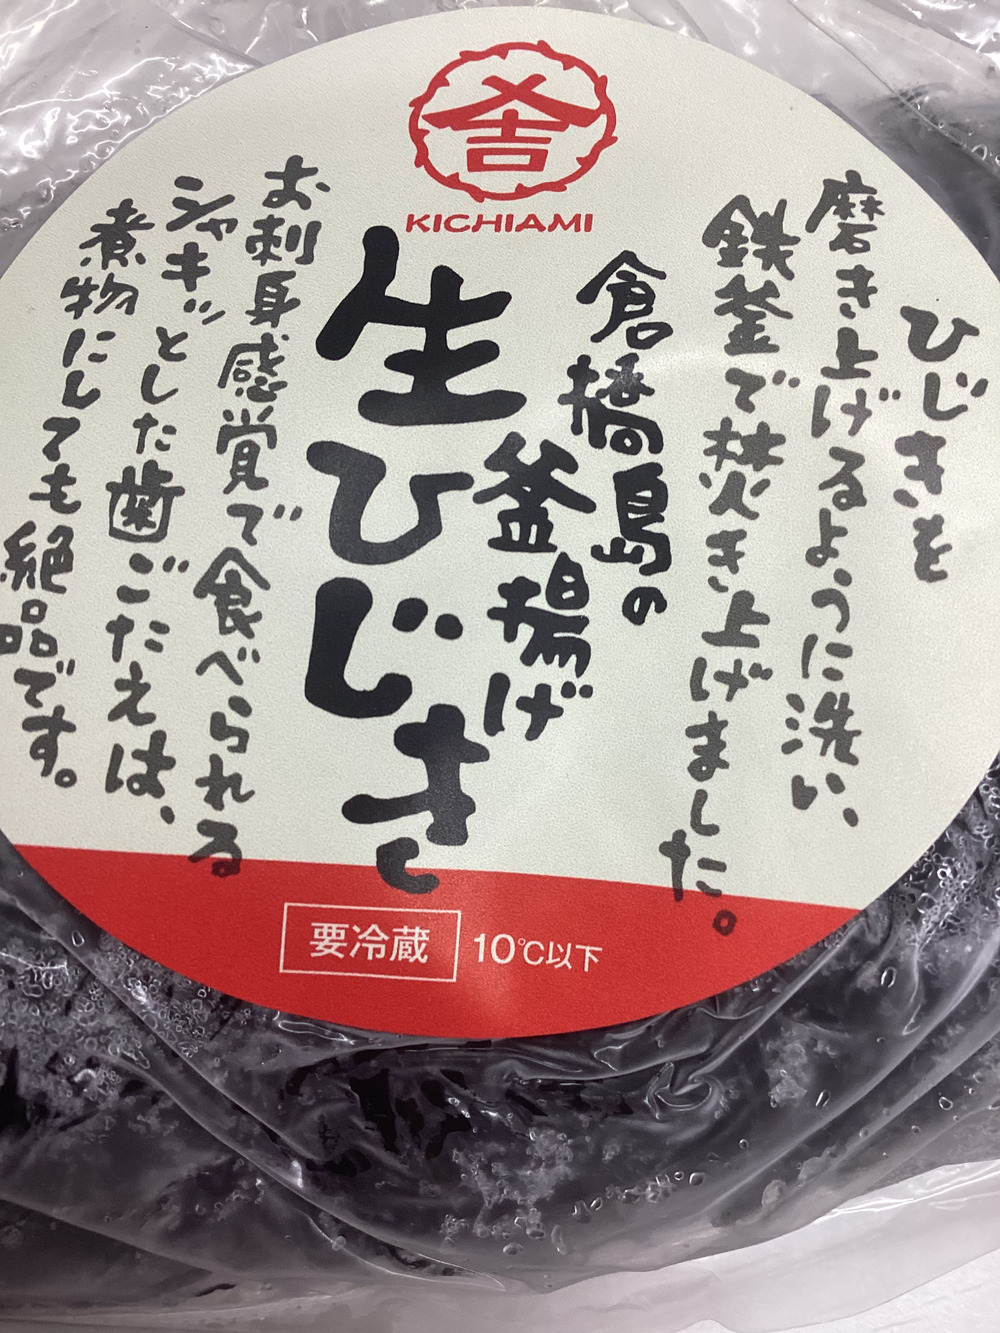 KICHIAMI
ひじきを
磨き上げるように洗い、
鉄釜で炊き上げました。
倉橋島の
釜揚げ
生ひじき
お刺身感覚で食べられる
シャキッとした歯ごたえは、
煮物にしても絶品です。
要冷蔵 10℃以下